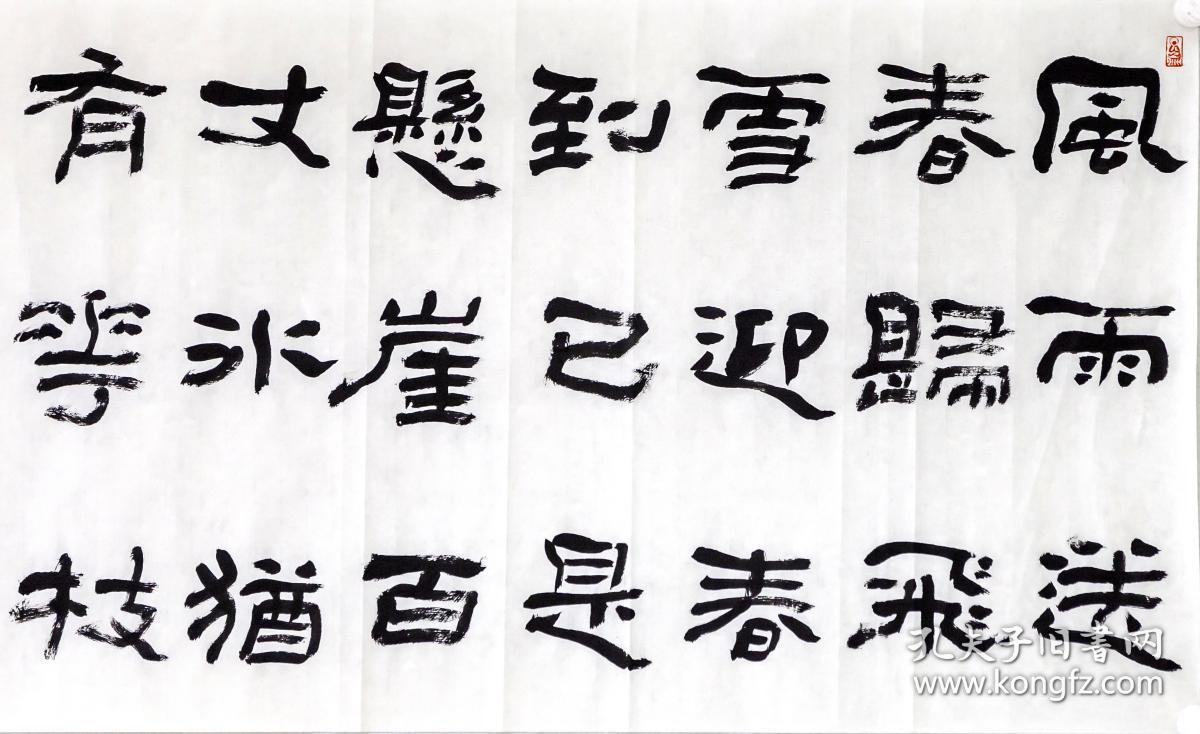 風雨送
春歸飛
雪迎春
到已是
懸崖百
丈冰猶
有花枝
孔夫子旧书网
www.kongfz.com